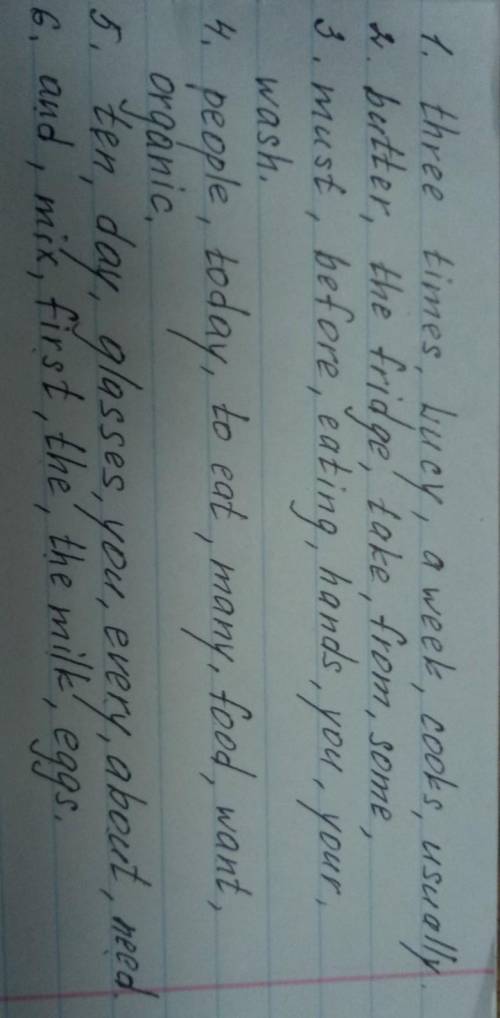 1. three times, Lucy, a week, cooks, usually.
2. butter, the fridge, take, from, some,
3. must, before, eating, hands, you, your,
wash.
4. people, today, to eat, many, food, want,
organic.
5. ten, day, glasses, you, every, about, need.
6. and, mix, first, the, the milk, eggs.